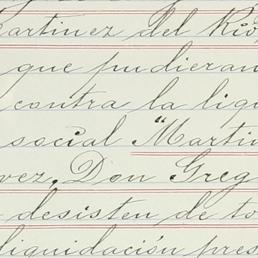 artinez del Río,
que pudieran
contra la liqu
social "Martin
vez, Don Greg
desisten de to
liquidación pres